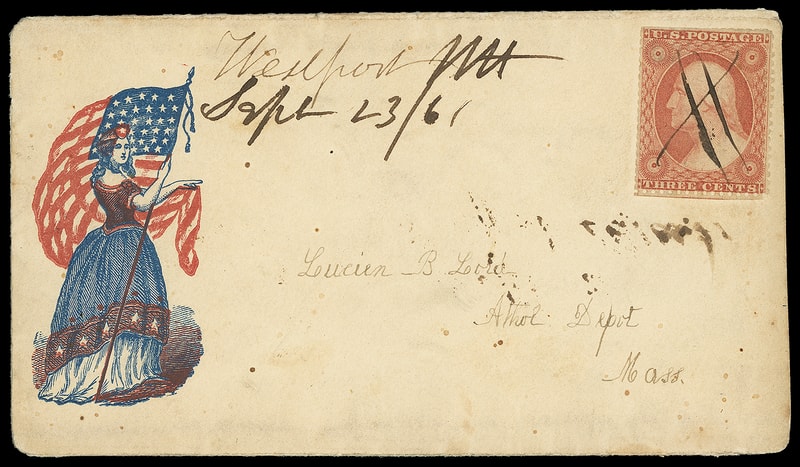 Westport NH
Sept 23/61
U.S. POSTAGE
THREE CENTS
Lucien B Lord
Athol Depot
Mass.